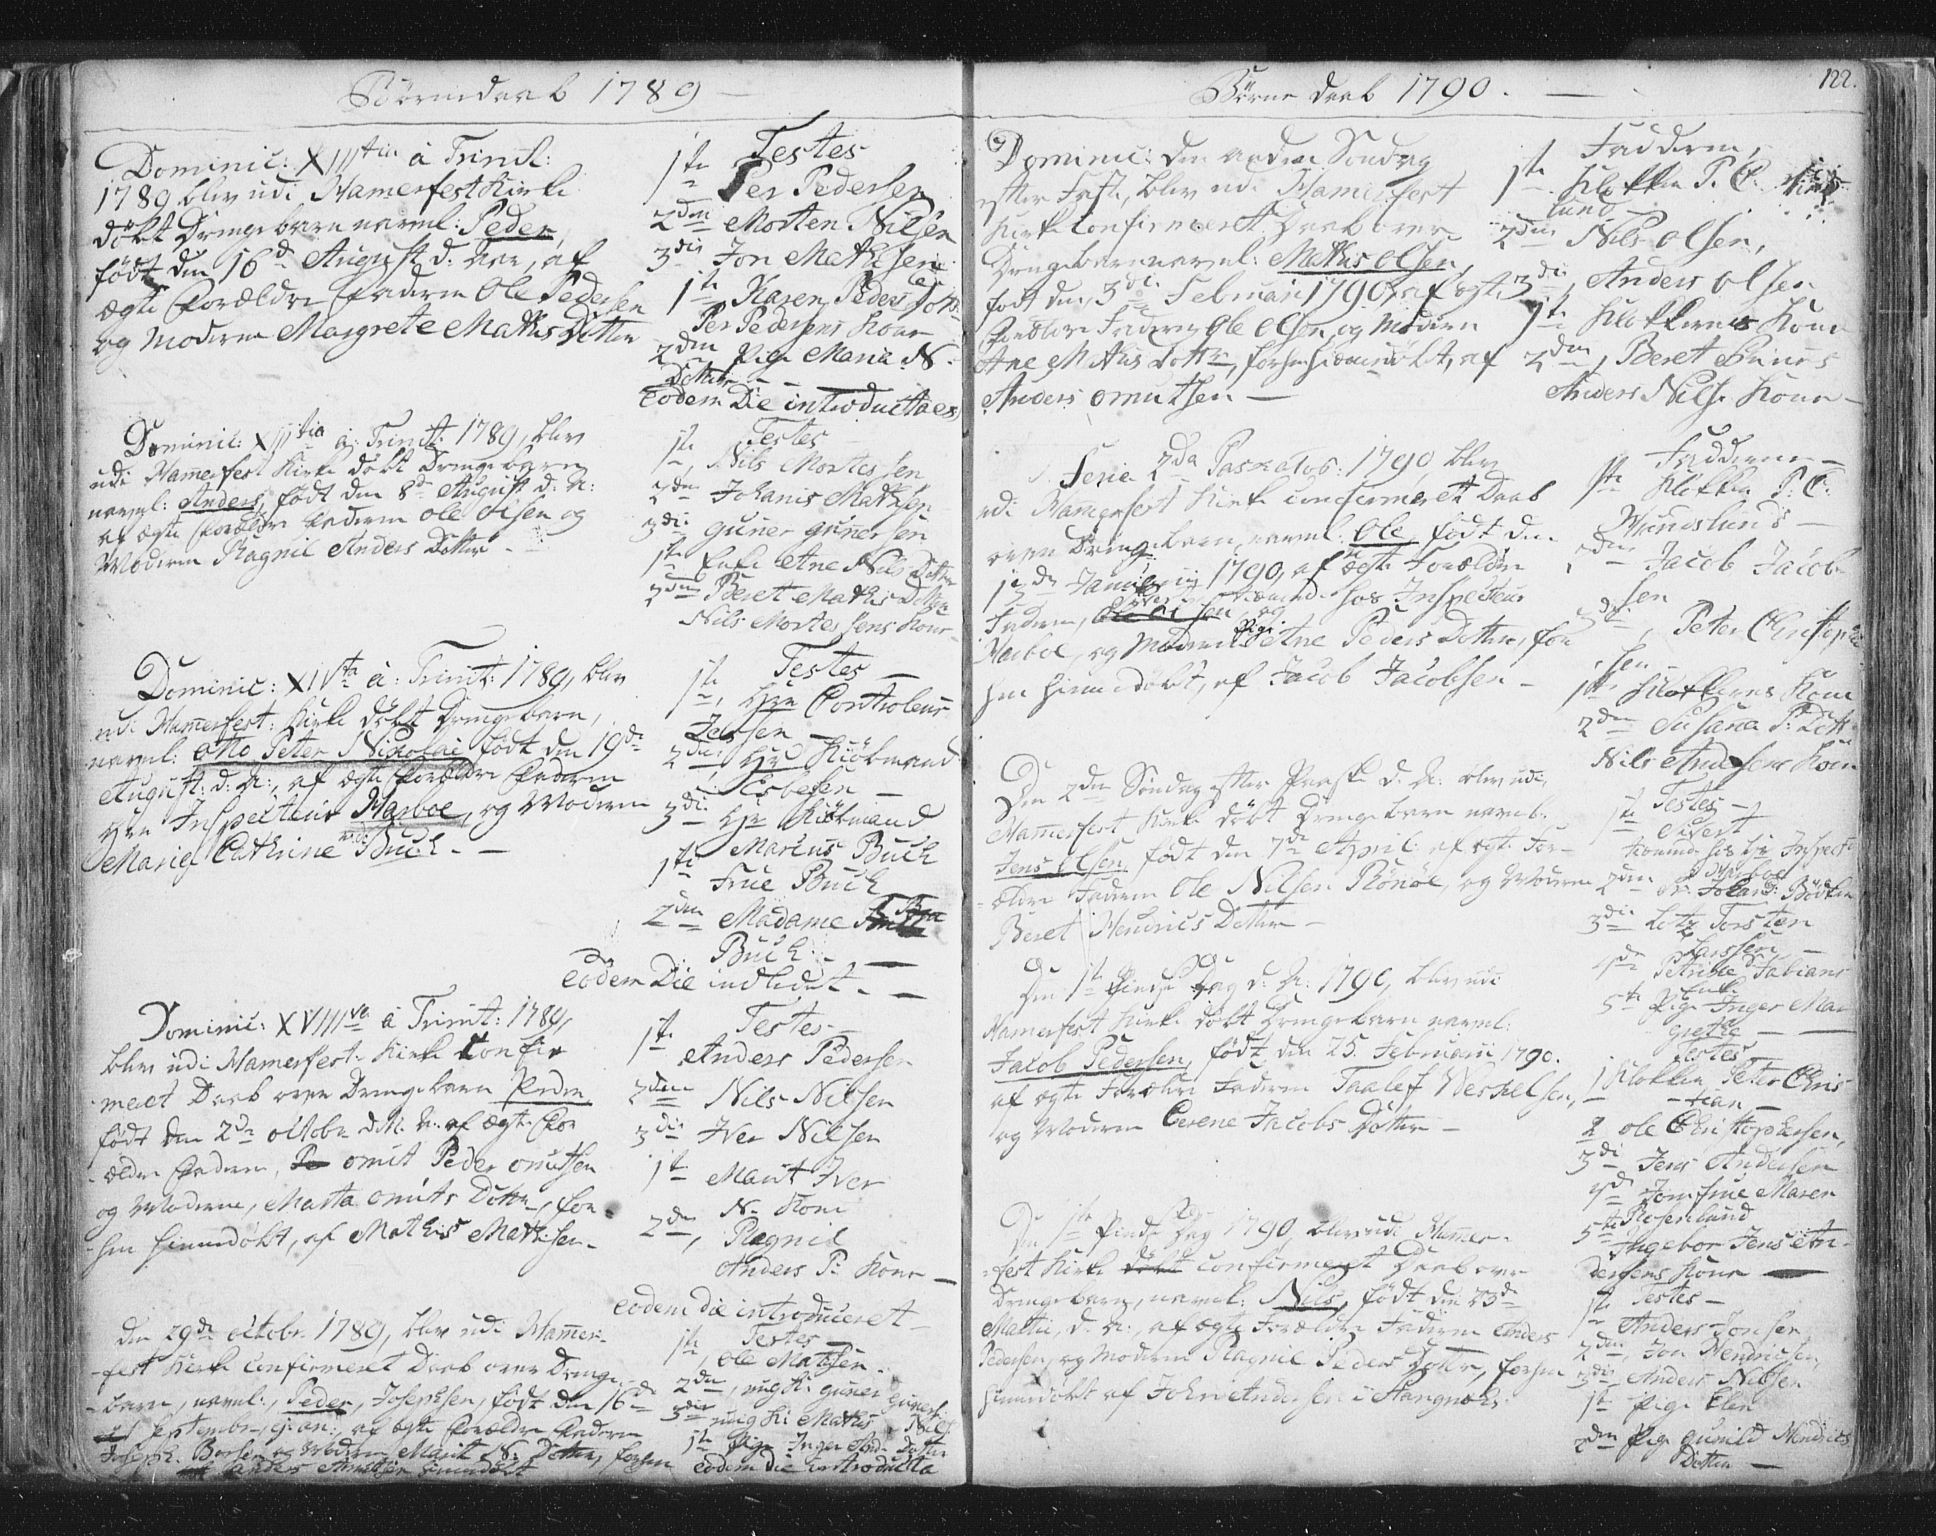 Börnedaab 1789
Dominic: XIIItia à Trinit:
1789 blev udi Hamerfest Kirke
döbt Drengebarn navnl: Peder,
födt den 16de August d: aar, af
ægte Forældre Faderen Ole Pedersen
og Moderen Margrete Mathis Dotter
Testes
1ste Per Pedersen
2den Morten Nilsen
3die Jon Mathisen
1ste Karen Peders
Per Pedersens Kone
2den Pige Maria N.
Dotter
eodem Die introducta
Dominic: XIIItia à: Trinit: 1789, blev
udi Hamerfest Kirke döbt Drengebarn
navnl: Anders, födt den 8de August d: A:
af ægte Forældre Faderen Ole Olsen og
Moderen Ragnil Anders Dotter
Testes
1ste, Nils Mortessen
2den Johanis Mathisen
3die Guner Gunersen
1ste Enke Ane Nils Dotter
2den Beret Mathis Dotter
Nils Mortessens Kone
Dominic: XIVta à: Trinit: 1789, blev
udi Hamerfest: Kirke döbt Drengebarn,
navnl: Otto Peter Nikolai födt den 19de
August: d: A:, af ægte Forældre Faderen
Hrr Inspecteur Harboe, og Moderen
Marie Cathrine Buch
Testes
1ste, Hrr Controleur
Jessen
2den, Hr Kiöbmand
Esbesen
3die Hr Kiöbmand
Marcus Buch
1ste Frue Buch
2den Madame
Buch
eodem Die indledet
Dominic: XVIIIva à Trinit: 1789,
blev udi Hamerfest Kirke confir
meret Daab over Drengebarn Peder
födt den 2den Octobr d. A. af ægte For
ældre Faderen, Omut Peder Omutsen
og Moderen, Marta Omuts Dotter, for
hen hiemedöbt, af Mathis Mathisen
Testes
1ste
Anders Pedersen
2den Nils Nilsen
3die Iver Nilsen
1ste Marit Iver
N. Kone
2den, Ragnil
Anders P. Kone
eodem die introduceret
den 29de Octobr 1789, blev udi Hamer
fest Kirke confirmeret Daab over Drenge
barn, navnl:, Peder, Josephsen, födt den 16de
Septembr, af ægte Forældre Faderen
Joseph. og Moderen Marit N. Dotter, forhen
Testes
1ste, Ole Matsen
2den, ung K: Guner Guners:
3die ung K: Mathis Nils:
1ste Pige Inger And: Dotter
eodem die introducta
Börne daab 1790.
122.
Dominic: den anden Söndag
efter Fast, blev udi Hamerfest
Kirke Confirmeret Daab over
Drengebarn navnl: Mathis Olsen,
født den 3die Februari 1790, af ægte
Forældre Faderen Ole Olsen, og Moderen
Ane Mathis Dotter, forhen hiemedöbt, af
Anders Omutsen
Fadderne,
1ste Klokker P. C.
lund
2den Nils Olsen,
3die, Anders Olsen
1ste Klokkerens Kone
2den, Beret
Anders Nils: Kone
Feria 2da Paskatos: 1790, blev
udi Hamerfest Kirke confirmeret Daab
over Drengebarn, navnl: Ole, födt den
12de Januarij 1790, af ægte Forældre
Faderen, tienende hos Inspecteur
Harboe, og Moderen Pige Ane Peders Dotter, for
hen hiemedöbt, af Jacob Jacobsen
Fadderne
1ste Klokker P. C.
2den Jacob Jacob
sen
3die, Peter Christoph
sen
1ste Klokkerens Kone
2den Susana P. Dott
Nils Andersens Kone
Den 2den Söndag efter Paaske d: A: blev udi,
Hamerfest Kirke döbt Drengebarn navnl.
Jens Olsen, födt den 7de April af ægte For-
ældre Faderen Ole Nilsen Rönöe, og Moderen
Beret Hendrics Dotter
Testes
1ste Sivert
tienende hos Hr Inspect:
Harboe
2den Sr. Johan: Bödker
3die Lotz Torsten
Larssen
4de Petriche Fabians
Enke
5te Pige Inger Mar
grethe
Den 1ste Pindse Dag d: A: 1790, blev udi
Hamerfest Kirke döbt Drengebarn navnl:
Jacob Pedersen, födt den 25. Februarii 1790.
af ægte Forældre Faderen Taalef Werkelsen,
og Moderen Cerene Jacobs Dotter
Testes
1 Klokker Peter Chris
tian
2 Ole Christophersen,
3die Jens Andersen
4de Jomfrue Maren
Rosenlund
5te Ingebor Jens An
dersens Kone
Den 1ste Pindse Dag 1790, blev udi Hamer
fest Kirke döbt confirmeret Daab over
Drengebarn, navnl: Nils, födt den 23de
Martii, d: A:, af ægte Forældre Faderen Anders
Pedersen, og Moderen Ragnil Peders Dotter, forhen
hiemedöbt af John Andersen i
Testes
1ste Anders Jonsen
2den, Jon Hendricsen
3die Anders Nilsen
1ste Pige Elen
2den Pige Gunild Hendrics
Dotter